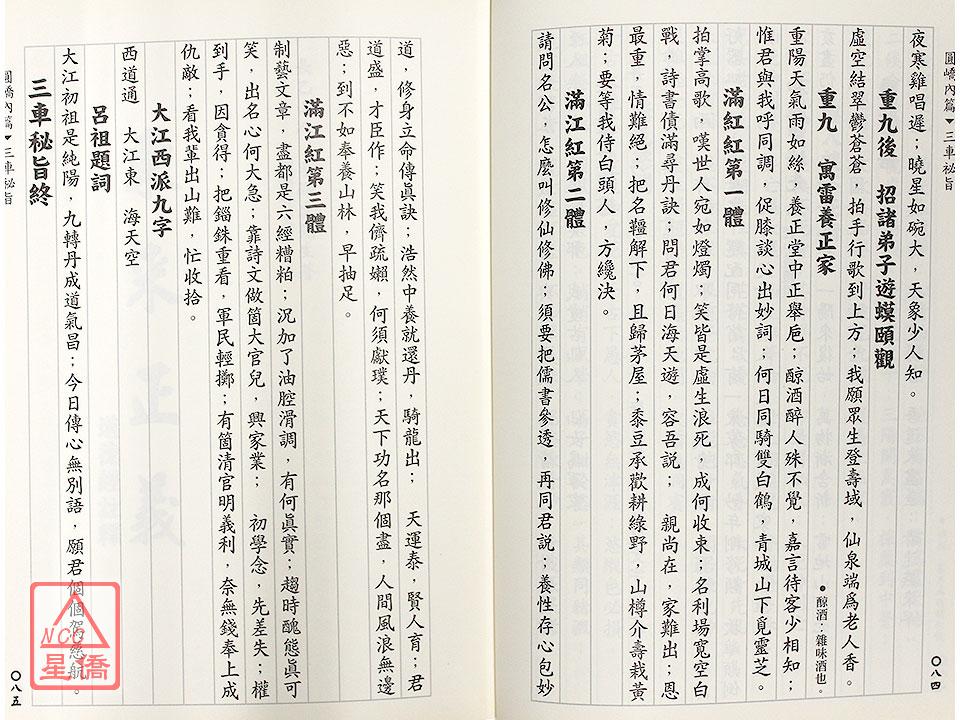 圓嶠內篇▼三車秘旨
夜寒雞唱遲；曉星如碗大，天象少人知。
重九後　招諸弟子遊蟆頤觀
虛空結翠鬱蒼蒼，拍手行歌到上方；我願眾生登壽域，仙泉端爲老人香。
重九　寓雷養正家
●醇酒：雜味酒也。
重陽天氣雨如絲，養正堂中正舉巵；醇酒醉人殊不覺，嘉言待客少相知；
惟君與我呼同調，促膝談心出妙詞；何日同騎雙白鶴，青城山下覓靈芝。
滿紅紅第一體
拍掌高歌，嘆世人宛如燈燭；笑皆是虛生浪死，成何收束；名利場寬空白
戰，詩書債滿尋丹訣；問君何日海天遊，容吾說　　親尚在，家難出；恩
最重，情難絕；把名韁解下，且歸茅屋；黍豆承歡耕綠野，山樽介壽栽黃
菊；要等我侍白頭人，方纔決。
滿江紅第二體
請問名公，怎麼叫修仙修佛；須要把儒書參透，再同君說；養性存心包妙
〇八四
道，修身立命傳眞訣；浩然中養就還丹，騎龍出　　天運泰，賢人育；君
道盛，才臣作；笑我儕疏嬾，何須獻璞；天下功名那個盡，人間風浪無邊
惡；到不如奉養山林，早抽足。
滿江紅第三體
制藝文章，盡都是六經糟粕；況加了油腔滑調，有何眞實；趨時醜態眞可
笑，出名心何大急；靠詩文做箇大官兒，興家業　　初學念，先差失；權
到手，因貪得；把錙銖重看，軍民輕擲；有箇清官明義利，奈無錢奉上成
仇敵；看我輩出山難，忙收拾。
大江西派九字
西道通　大江東　海天空
呂祖題詞
大江初祖是純陽，九轉丹成道氣昌；今日傳心無別語，願君個個駕慈航。
三車秘旨終
圓嶠內篇▼三車秘旨
〇八五
NCC
星僑